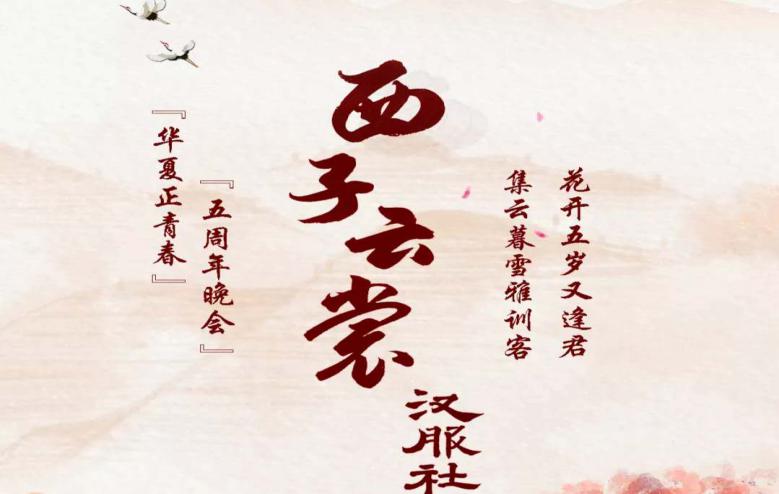 花开五岁又逢君
集云暮雪雅训客
西子云裳
汉服社
『五周年晚会』
『华夏正青春』